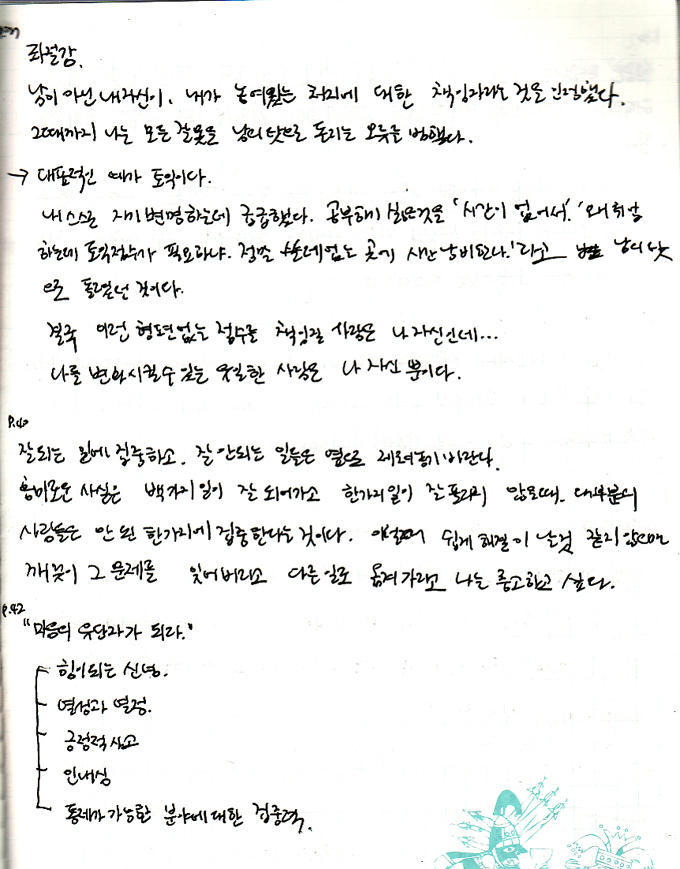 좌절감.
남이 아닌 내자신이, 내가 놓여있는 처지에 대한 책임자라는 것을 인정했다.
그때까지 나는 모든 잘못을 남의 탓으로 돌리는 오류를 범했다.
→ 대표적인 예가 토익이다.
내 스스로 자기변명하는데 급급했다. 공부하기 싫은것을 '시간이 없어서'. '왜 취업
하는데 토익점수가 필요하냐. 정말 쓸데없는 곳에 시간낭비한다.'라고 남의 탓
으로 돌렸던 것이다.
결국 이런 형편없는 점수를 책임질 사람은 나 자신인데...
나를 변화시킬수 있는 유일한 사람은 나 자신 뿐이다.
P.40
잘되는 일에 집중하고, 잘 안되는 일들은 옆으로 제쳐놓기 바란다.
흥미로운 사실은 백가지 일이 잘 되어가고 한가지 일이 잘 풀리지 않을때. 대부분의
사람들은 안 된 한가지에 집중한다는 것이다. 이럴때 쉽게 해결이 날것 같지 않으면
깨끗이 그 문제를 잊어버리고 다른 일로 옮겨가라고 나는 충고하고 싶다.
P.42
"마음의 유단자가 되라."
힘이되는 신념.
열성과 열정.
긍정적 사고
인내심
통제가 가능한 분야에 대한 집중력.